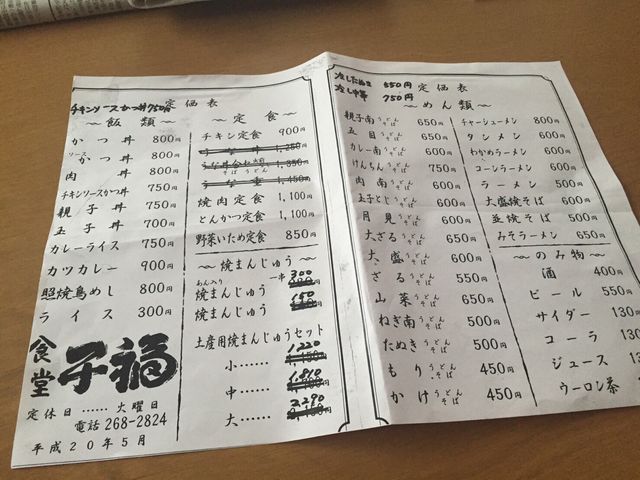 チキンソースかつ丼 750円
定価表
～飯類～
かつ丼 800円
ソースかつ丼 800円
肉丼 800円
チキンソースかつ丼 750円
親子丼 750円
玉子丼 700円
カレーライス 750円
カツカレー 900円
照焼鳥めし 800円
ライス 300円
食堂 子福
定休日……火曜日
電話 268-2824
平成20年5月
～定食～
チキン定食 900円
うな丼 1,250
うな丼合わせ 1,350
うどん そば
うな重 1,450円
焼肉定食 1,100円
とんかつ定食 1,100円
野菜いため定食 850円
～焼まんじゅう～
あん入り
焼まんじゅう 一串 300
焼まんじゅう 150
土産用焼まんじゅうセット
小…… 1,220
中…… 1,810
大…… 2,290
冷したぬき 550円
冷し中華 750円
定価表
～めん類～
親子南 うどん そば 650円
五目 うどん そば 650円
カレー南 うどん そば 600円
けんちん うどん そば 750円
肉南 うどん そば 600円
玉子とじ うどん そば 600円
月見 うどん そば 600円
大ざる うどん そば 650円
大盛 うどん そば 600円
ざる うどん そば 550円
山菜 うどん そば 650円
ねぎ南 うどん そば 500円
たぬき うどん そば 500円
もり うどん そば 450円
かけ うどん そば 450円
チャーシューメン 800円
タンメン 600円
わかめラーメン 600円
コーンラーメン 600円
ラーメン 500円
大盛焼そば 600円
並焼そば 500円
みそラーメン 600円
～のみ物～
酒 400円
ビール 550円
サイダー 130円
コーラ 130円
ジュース 130円
ウーロン茶 130